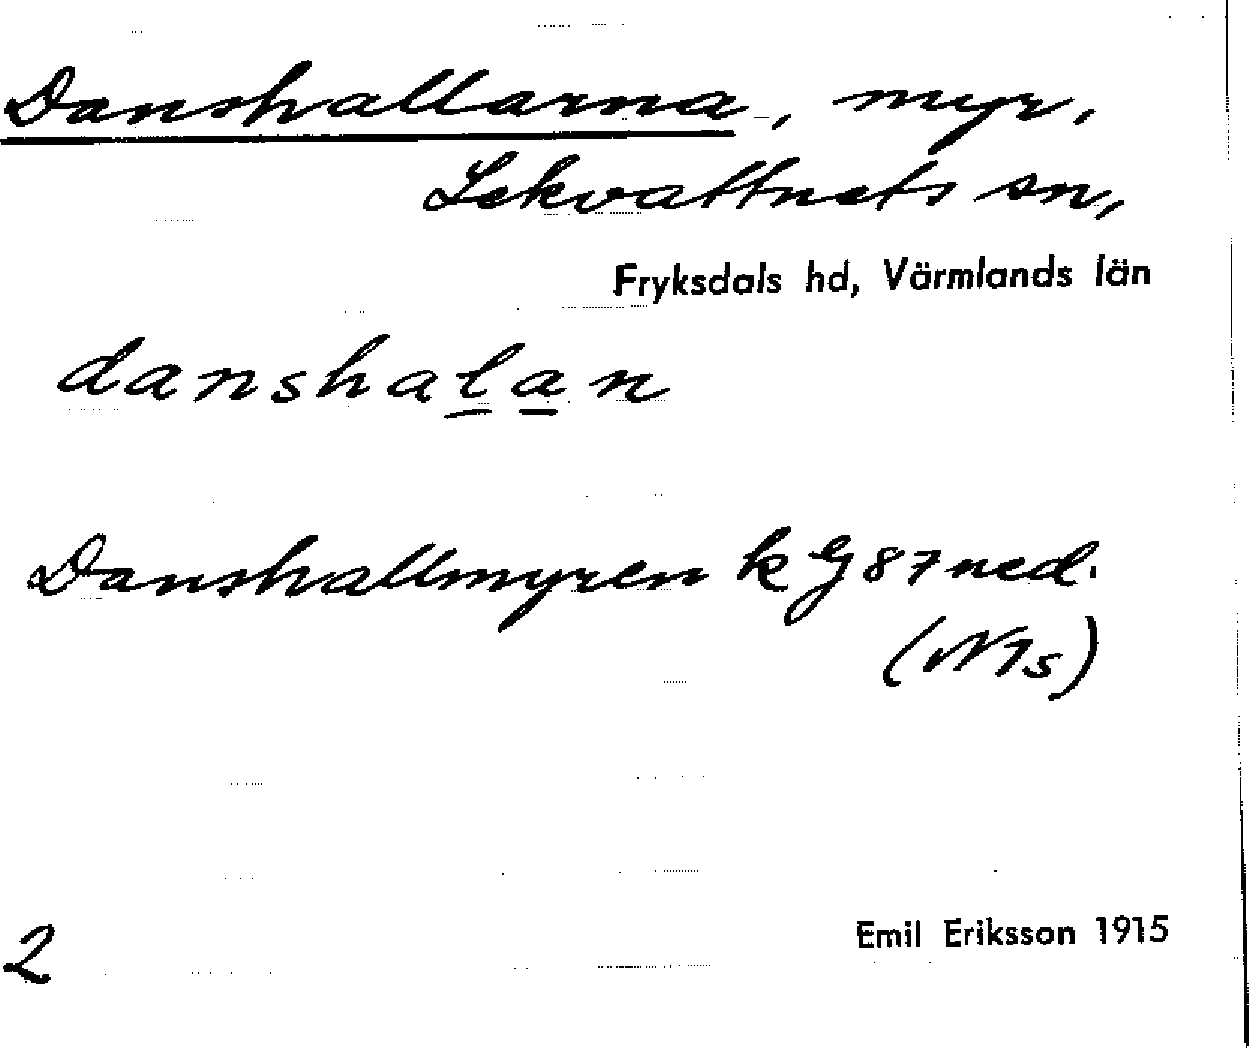 Danshallarna, myr,
Lekvattnets sn,
Fryksdals hd, Värmlands län
danshalan
Danshallmyren k G 87 ned.
(NTs)
2
Emil Eriksson 1915